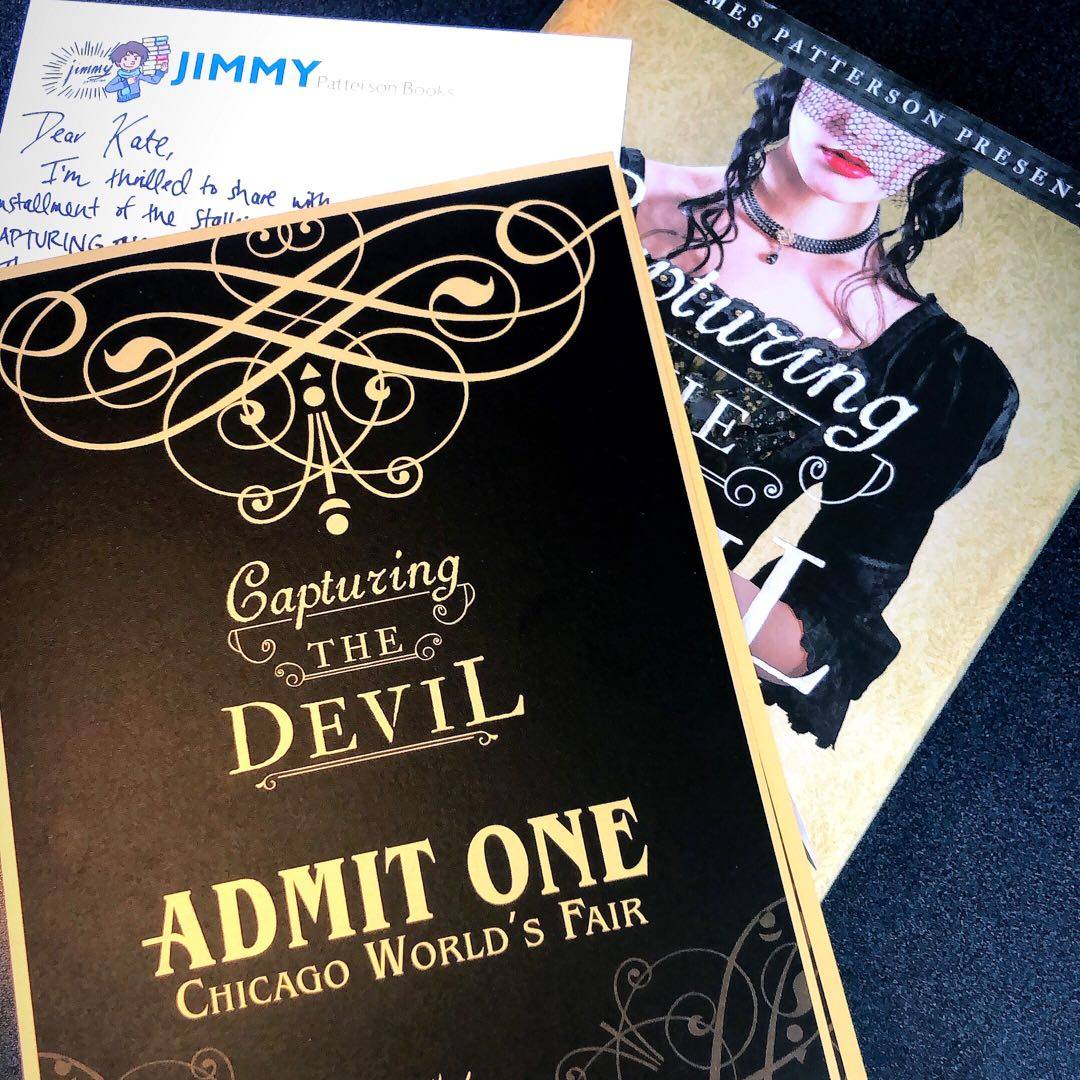 jimmy
JIMMY Patterson Books
Dear Kate,
I'm thrilled to share with
installment of the
CAPTURING
JAMES PATTERSON PRESENTS
Capturing
THE
Capturing
THE
DEVIL
ADMIT ONE
CHICAGO WORLD'S FAIR